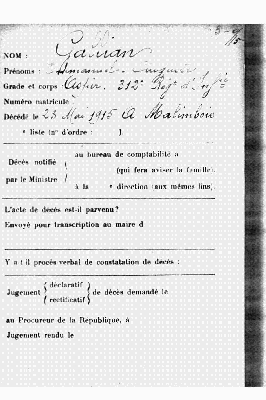 NOM : Galvian
Prénoms : Emmanuel Auguste
Grade et corps Aspir. 312e Rég. d'Inf.ie
Numéro matricule
Décédé le 23 Mai 1915 A Malimbois
" liste (n° d'ordre : ).
Décès notifié
par le Ministre
au bureau de comptabilité a
(qui fera aviser la famille).
à la " direction (aux mêmes fins).
L'acte de décès est-il parvenu ?
Envoyé pour transcription au maire d
Y a t il procès verbal de constatation de décès :
Jugement { déclaratif / rectificatif } de décès demandé le
au Procureur de la République, à
Jugement rendu le